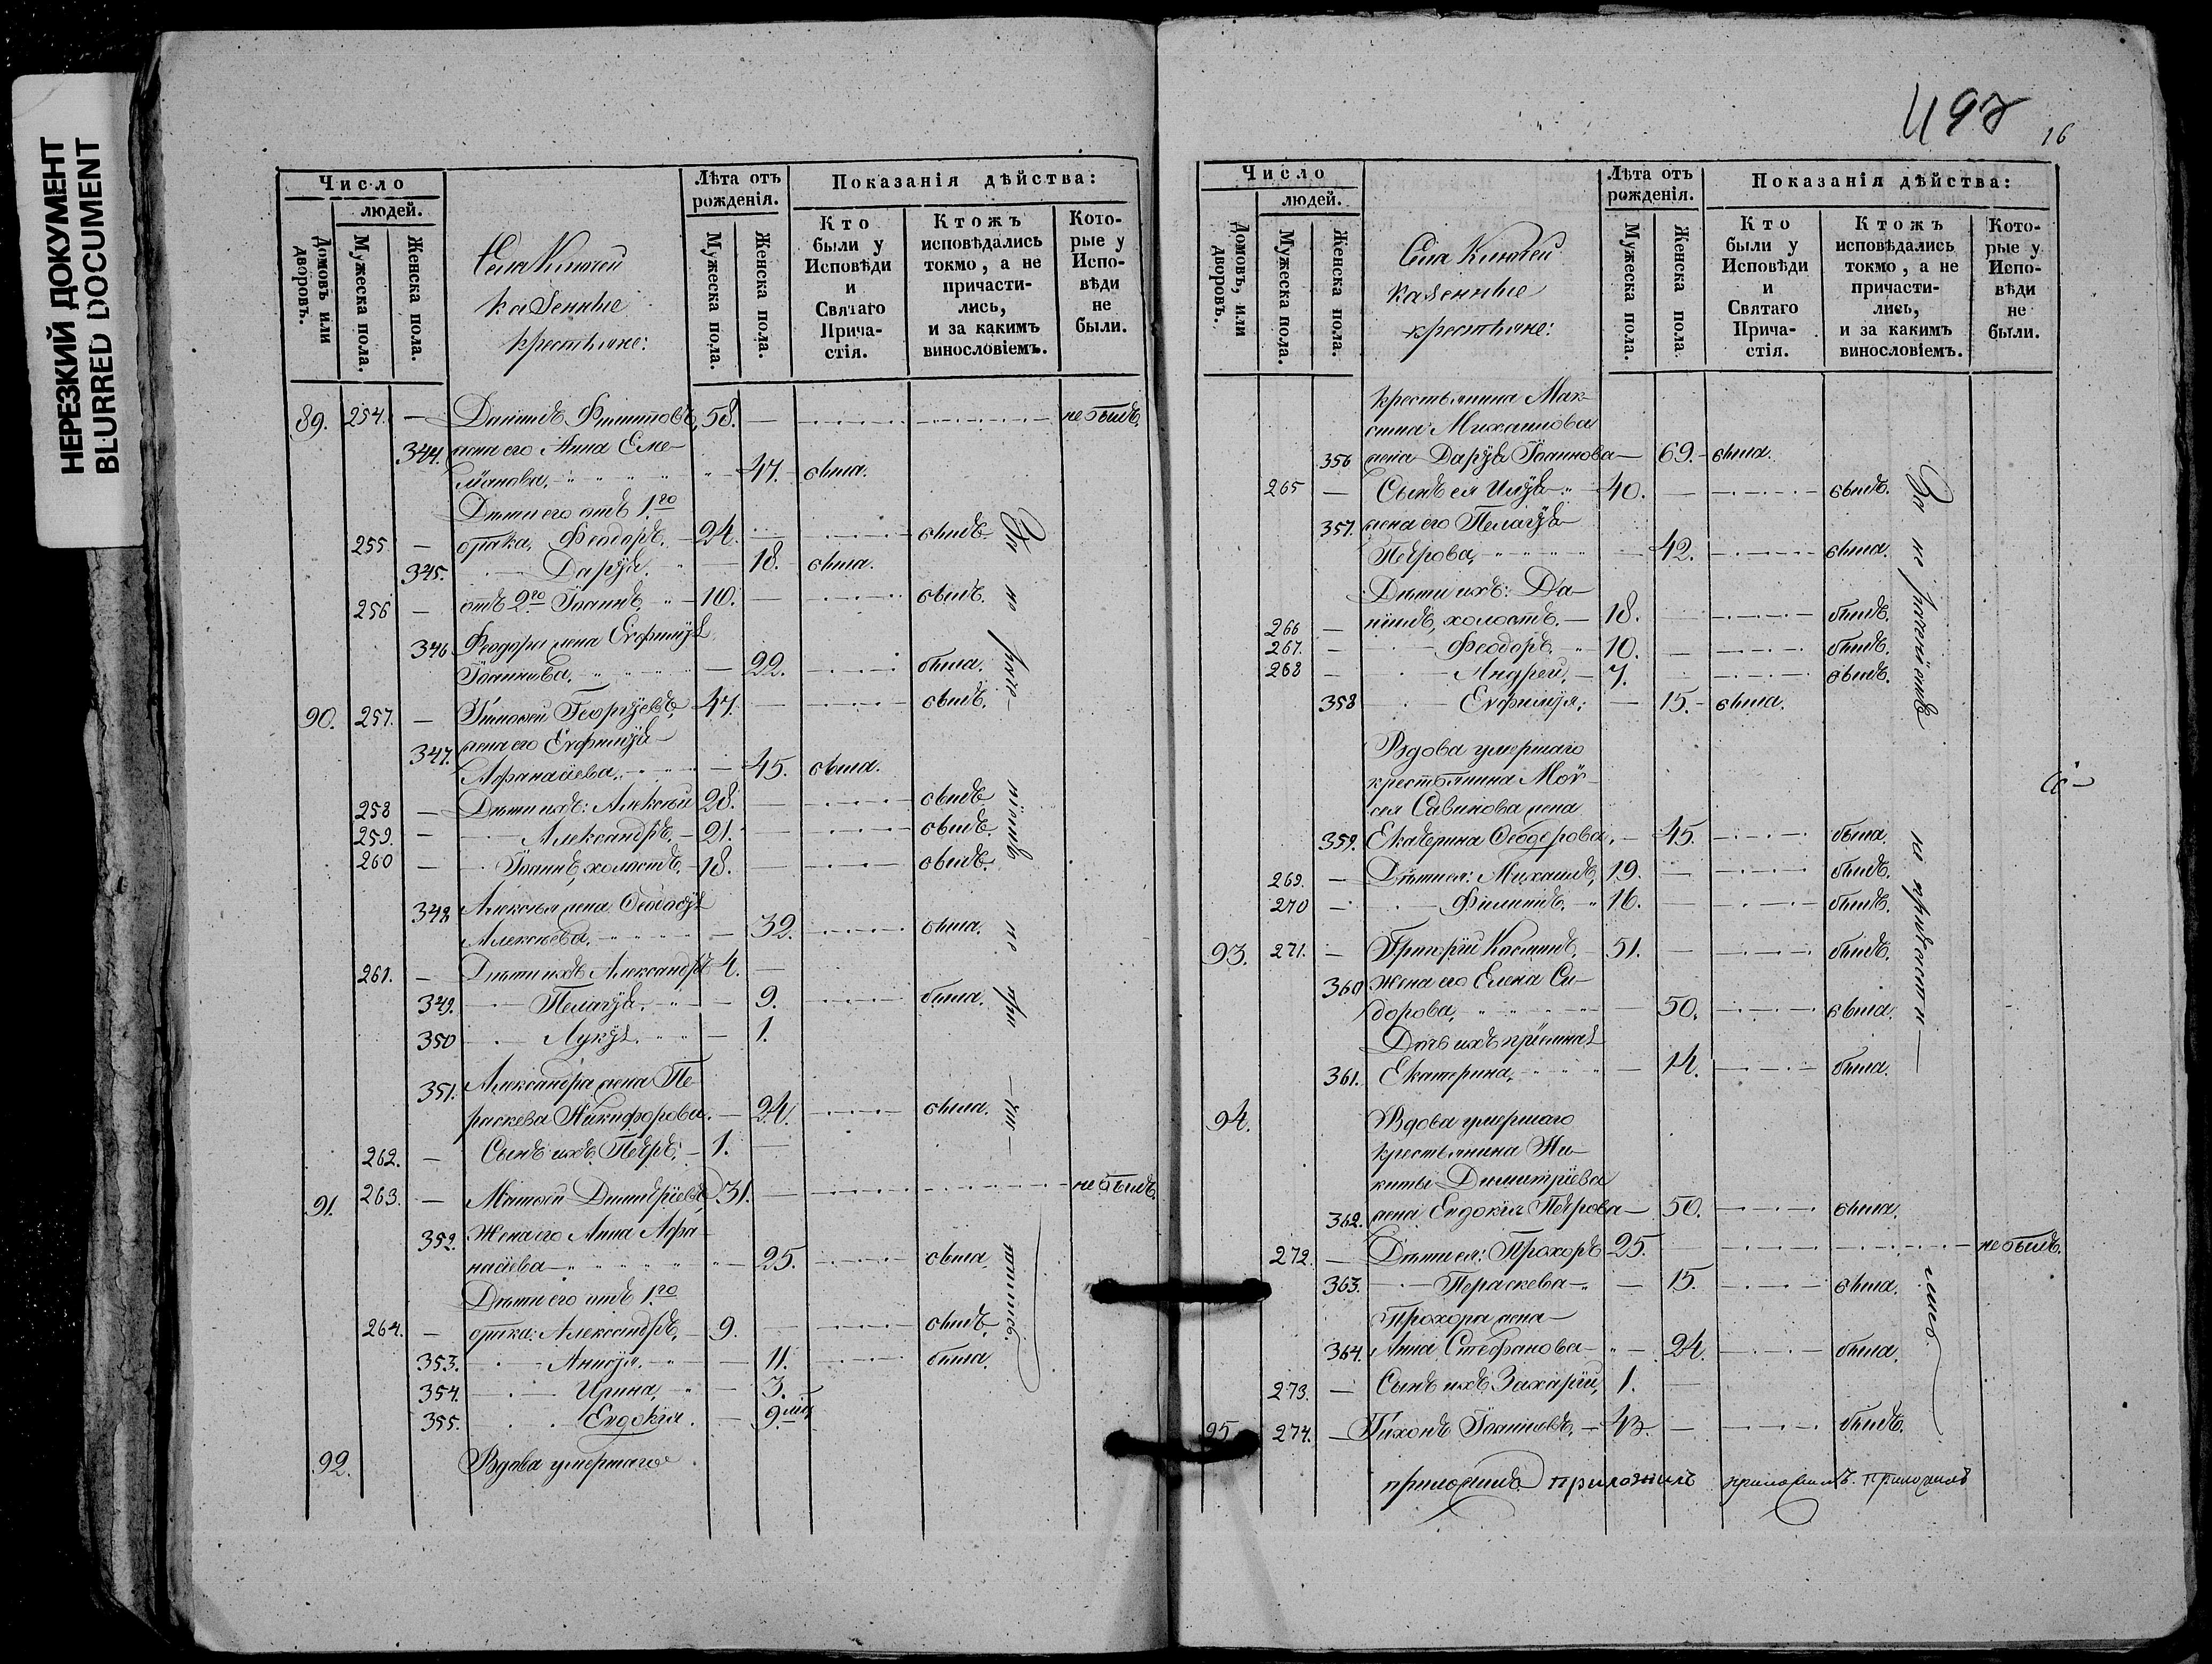 НЕРЕЗКИЙ ДОКУМЕНТ
BLURRED DOCUMENT
Число
людей.
Домовъ или дворовъ.
Мужеска пола.
Женска пола.
Села Ключей
казенные
крестьяне:
Лѣта отъ рожденія.
Мужеска пола.
Женска пола.
Показанія дѣйства:
Кто были у Исповѣди и Святаго Прича- стія.
Ктожъ исповѣдались токмо, а не причасти- лись, и за какимъ винословіемъ.
Кото- рые у Испо- вѣди не были.
89. 254. — Даніилъ Филипповъ, 58. — не былъ.
344. жена его Анна Еме-
ліанова, — 47. была.
Дѣти его отъ 1го
255 — брака, Феодоръ, — 24. — былъ
345. — Дарія. — 18. была.
256 — отъ 2го Іоаннъ, — 10. — былъ.
346 Феодора жена Евфимія
Іоаннова, — 22. — была.
90. 257. — Тимофей Георгіевъ, 47. — былъ.
347. жена его Евфимія
Афанасіева, — 45. была.
258 — Дѣти ихъ: Алексѣй 28. — былъ
259. — Александръ, — 21. — былъ.
260 — Іоаннъ, холостъ, — 18. — былъ.
348 Алексѣя жена Феодосія
Алексѣева, — 32. — была.
261. — Дѣти ихъ Александръ 4. —
349. — Пелагія. — 9. — была.
350 — Лукія. — 1.
351. Александра жена Пе-
раскева Никифорова. — 24. — была.
262. — Сынъ ихъ Петръ, — 1. —
91. 263. — Матвей Димитріевъ, 31. — не былъ
352. Жена его Анна Афа-
насіева — 25. — была
Дѣти его отъ 1го
264. — брака: Александръ, — 9. — былъ.
353. — Анисія. — 11. — была.
354. — Ирина, — 3. —
355. — Евдокія. — 9 мѣс
92. Вдова умершаго
За не раче-
ніемъ не при
-чти-
лись.
497
16
Число
людей.
Домовъ, или дворовъ.
Мужеска пола.
Женска пола.
Села Ключей
казенные
крестьяне:
Лѣта отъ рожденія.
Мужеска пола.
Женска пола.
Показанія дѣйства:
Кто были у Исповѣди и Святаго Прича- стія.
Ктожъ исповѣдались токмо, а не причасти- лись, и за какимъ винословіемъ.
Кото- рые у Испо- вѣди не были.
крестьянина Мак-
сима Михаилова
356 жена Дарія Іоаннова — 69. — была.
265 — Сынъ ея Илія — 40. — былъ.
357. жена его Пелагія
Петрова, — 42. — была.
Дѣти ихъ: Да-
266 — ніилъ, холостъ. — 18. — былъ.
267. — Феодоръ, — 10. — былъ.
268 — Андрей, — 7. — былъ.
358 — Евфимія, — 15. — была.
Вдова умершаго
крестьянина Мой-
сея Савинова жена
359. Екатерина Феодорова, — 45. — была.
269. — Дѣти ея: Михаилъ, 19. — былъ.
270 — Филиппъ, — 16. — былъ.
93. 271. — Григорій Косминъ, — 51. — былъ.
360 Жена его Елена Си-
дорова, — 50. — была.
Дочь ихъ пріемная
361. Екатерина, — 14. — была.
94. Вдова умершаго
крестьянина Ни-
киты Димитріева
362. жена Евдокія Петрова — 50. — была.
272. — Дѣти ея: Прохоръ 25. — не былъ.
363. — Пераскева — 15. — была.
Прохора жена
364. Анна Стефанова — 24. — была.
273. — Сынъ ихъ Захарій, 1. —
95 274. — Тихонъ Іоанновъ, — 43. — былъ.
За не раченіемъ
не причасти —
лись.
приложилъ приложилъ приложилъ. приложилъ